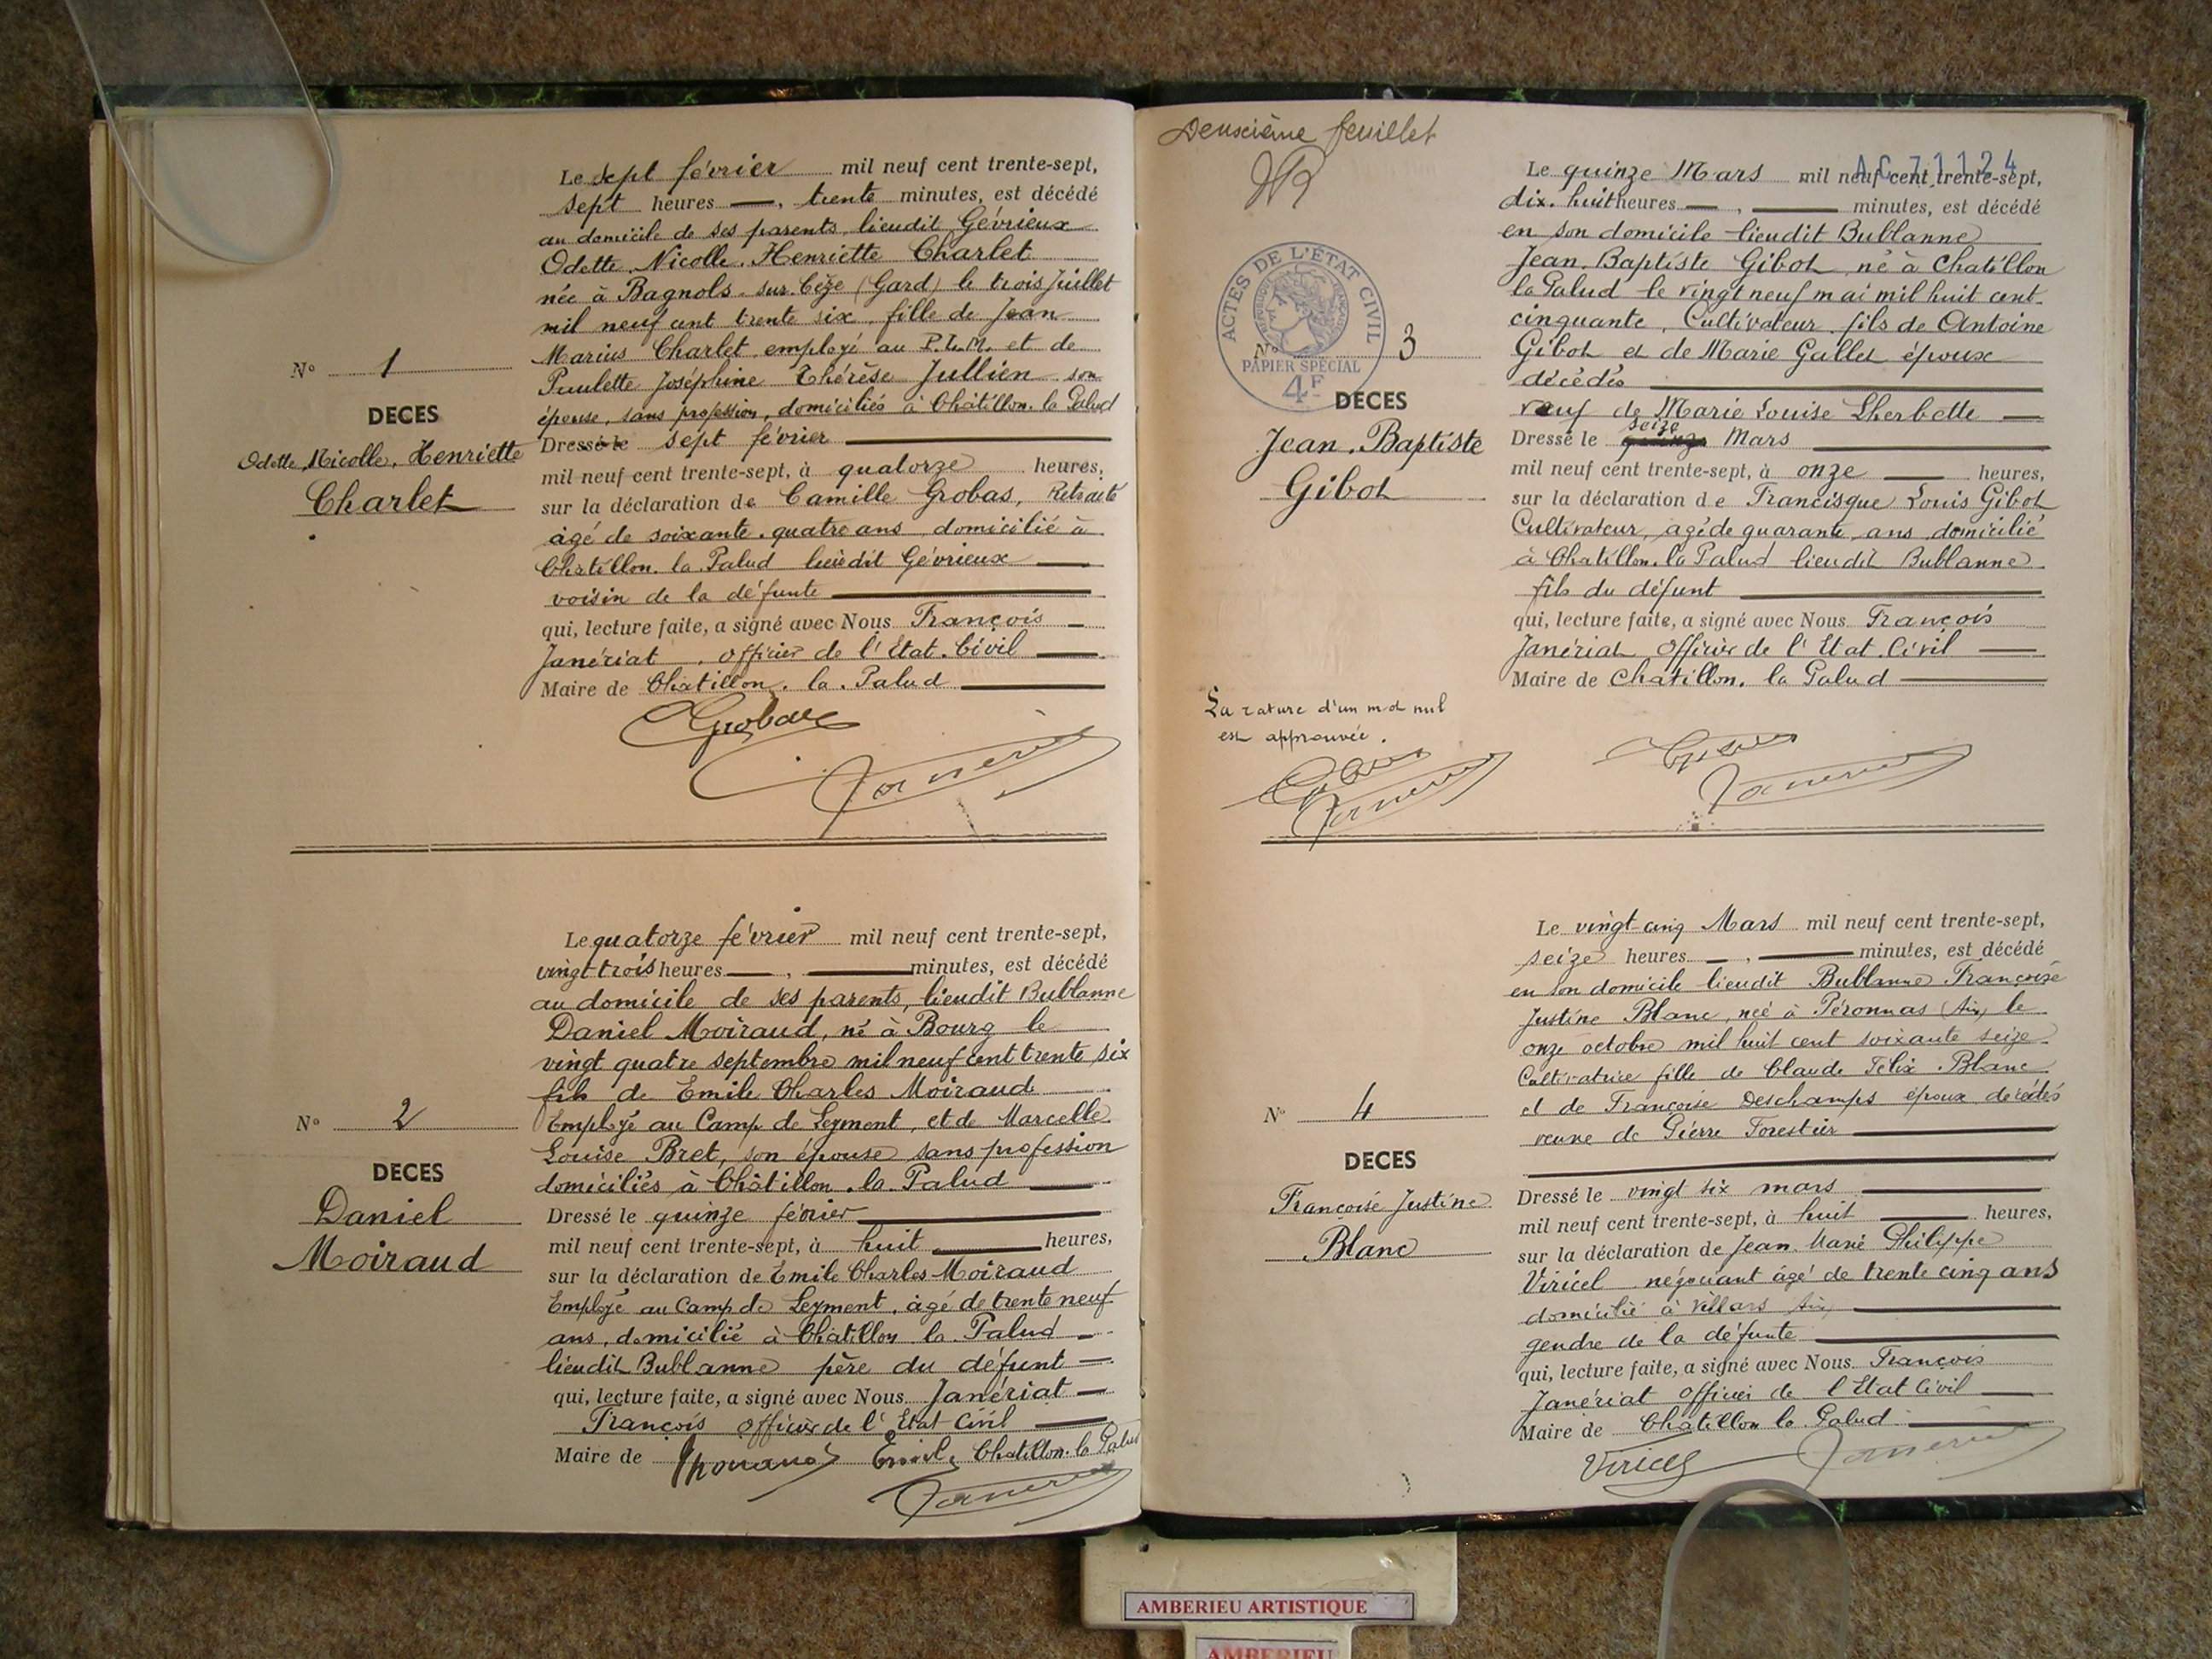 Le sept février mil neuf cent trente-sept,
sept heures —, trente minutes, est décédé
au domicile de ses parents, lieudit Gévrieux
Odette, Nicolle, Henriette Charlet
née à Bagnols-sur-Cèze (Gard) le trois Juillet
mil neuf cent trente six, fille de Jean
Marius Charlet employé au P.L.M. et de
Paulette Joséphine Thérèse Jullien son
épouse, sans profession, domiciliés à Châtillon-la-Palud
N° 1
DECES
Odette, Nicolle, Henriette
Charlet
Dressé le sept février
mil neuf cent trente-sept, à quatorze heures,
sur la déclaration de Camille Grobas, Retraité
âgé de soixante-quatre ans, domicilié à
Châtillon-la-Palud lieudit Gévrieux
voisin de la défunte
qui, lecture faite, a signé avec Nous François
Janériat, officier de l'Etat-Civil
Maire de Châtillon-la-Palud
Grobas
Janériat
Le quatorze février mil neuf cent trente-sept,
vingt-trois heures —, — minutes, est décédé
au domicile de ses parents, lieudit Bublanne
Daniel Moiraud, né à Bourg le
vingt quatre septembre mil neuf cent trente six
fils de Emile Charles Moiraud
Employé au Camp de Leyment, et de Marcelle
Louise Bret, son épouse sans profession
domiciliés à Châtillon-la-Palud
N° 2
DECES
Daniel
Moiraud
Dressé le quinze février
mil neuf cent trente-sept, à huit heures,
sur la déclaration de Emile Charles Moiraud
Employé au Camp de Leyment, âgé de trente neuf
ans, domicilié à Châtillon la Palud
lieudit Bublanne père du défunt
qui, lecture faite, a signé avec Nous Janériat
François officier de l'Etat-Civil
Maire de Châtillon-la-Palud
Moiraud Emile
Janériat
Deuxième feuillet
AC 71124
Le quinze Mars mil neuf cent trente-sept,
dix-huit heures —, — minutes, est décédé
en son domicile lieudit Bublanne
Jean-Baptiste Gibot né à Chatillon
la Palud le vingt neuf mai mil huit cent
cinquante, Cultivateur fils de Antoine
Gibot et de Marie Gallet époux
décédés
veuf de Marie Louise Lherbette
ACTES DE L'ÉTAT CIVIL
RÉPUBLIQUE FRANÇAISE
PAPIER SPÉCIAL
4F
N° 3
DECES
Jean-Baptiste
Gibot
Dressé le quinze seize Mars
mil neuf cent trente-sept, à onze heures,
sur la déclaration de Francisque Louis Gibot
Cultivateur, agé de quarante ans domicilié
à Chatillon-la-Palud lieudit Bublanne
fils du défunt
qui, lecture faite, a signé avec Nous François
Janériat officier de l'Etat-Civil
Maire de Chatillon-la-Palud
La rature d'un mot nul
est approuvée.
Gibot
Janériat
Gibot
Janériat
Le vingt cinq Mars mil neuf cent trente-sept,
seize heures —, — minutes, est décédé
en son domicile lieudit Bublanne Françoise
Justine Blanc, née à Péronnas (Ain) le
onze octobre mil huit cent soixante seize
Cultivatrice fille de Claude Félix Blanc
et de Françoise Deschamps époux décédés
veuve de Pierre Forestier
N° 4
DECES
Francoise Justine
Blanc
Dressé le vingt six mars
mil neuf cent trente-sept, à huit heures,
sur la déclaration de Jean Marie Philippe
Viricel négociant âgé de trente cinq ans
domicilié à Villars Ain
gendre de la défunte
qui, lecture faite, a signé avec Nous François
Janériat officier de l'Etat Civil
Maire de Chatillon la Palud
Viricel
Janériat
AMBERIEU ARTISTIQUE
AMBERIEU